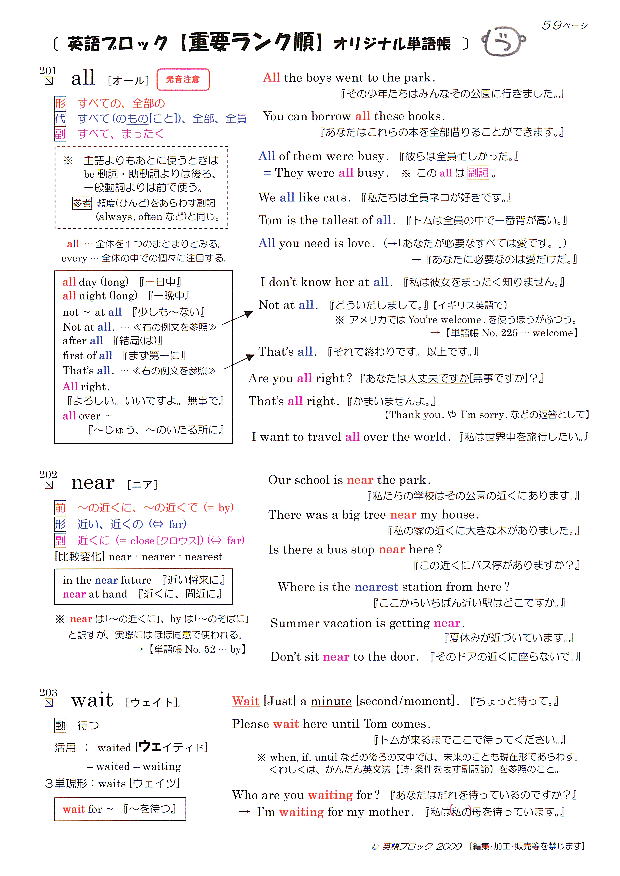 59ページ
〔 英語ブロック【重要ランク順】オリジナル単語帳 〕
201
all ［オール］ 発音注意
形 すべての、全部の
代 すべて(のもの[こと])、全部、全員
副 すべて、まったく
※ 主語よりもあとに使うときは
be動詞・助動詞よりは後ろ、
一般動詞よりは前で使う。
参考 頻度(ひんど)をあらわす副詞
(always, oftenなど)と同じ。
all … 全体を1つのまとまりとみる。
every … 全体の中での個々に注目する。
all day (long) 『一日中』
all night (long) 『一晩中』
not ~ at all 『少しも~ない』
Not at all. … ≪右の例文を参照≫
after all 『結局(は)』
first of all 『まず第一に』
That's all. … ≪右の例文を参照≫
All right.
『よろしい、いいですよ。無事で』
all over ~
『~じゅう、~のいたる所に』
All the boys went to the park.
『その少年たちはみんなその公園に行きました。』
You can borrow all these books.
『あなたはこれらの本を全部借りることができます。』
All of them were busy. 『彼らは全員忙しかった。』
= They were all busy. ※ この all は副詞。
We all like cats. 『私たちは全員ネコが好きです。』
Tom is the tallest of all. 『トムは全員の中で一番背が高い。』
All you need is love. (→「あなたが必要なすべては愛です。」)
→『あなたに必要なのは愛だけだ。』
I don't know her at all. 『私は彼女をまったく知りません。』
Not at all. 『どういたしまして。』【イギリス英語で】
※ アメリカでは You're welcome. を使うほうがふつう。
→【単語帳 No. 225 … welcome】
That's all. 『それで終わりです。以上です。』
Are you all right? 『あなたは大丈夫ですか[無事ですか]?』
That's all right. 『かまいませんよ。』
【Thank you. や I'm sorry. などの返答として】
I want to travel all over the world. 『私は世界中を旅行したい。』
202
near ［ニア］
前 ~の近くに、~の近くで (= by)
形 近い、近くの (⇔ far)
副 近くに (= close[クロウス]) (⇔ far)
[比較変化] near - nearer - nearest
in the near future 『近い将来に』
near at hand 『近くに、間近に』
※ near は「~の近くに」、by は「~のそばに」
と訳すが、実際にはほぼ同意で使われる。
→【単語帳 No. 52 … by】
Our school is near the park.
『私たちの学校はその公園の近くにあります。』
There was a big tree near my house.
『私の家の近くに大きな木がありました。』
Is there a bus stop near here?
『この近くにバス停がありますか?』
Where is the nearest station from here?
『ここからいちばん近い駅はどこですか。』
Summer vacation is getting near.
『夏休みが近づいています。』
Don't sit near to the door. 『そのドアの近くに座らないで。』
203
wait ［ウェイト］
動 待つ
活用 : waited [ウェイティド]
– waited – waiting
3単現形 : waits [ウェイツ]
wait for ~ 『~を待つ。』
Wait [Just] a minute [second/moment]. 『ちょっと待って。』
Please wait here until Tom comes.
『トムが来るまでここで待ってください。』
※ when, if, until などの後ろの文中では、未来のことも現在形であらわす。
くわしくは、かんたん英文法【時・条件を表す副詞節】を参照のこと。
Who are you waiting for? 『あなたはだれを待っているのですか?』
→ I'm waiting for my mother. 『私は私の母を待っています。』
© 英語ブロック 2009 [編集・加工・販売等を禁じます]